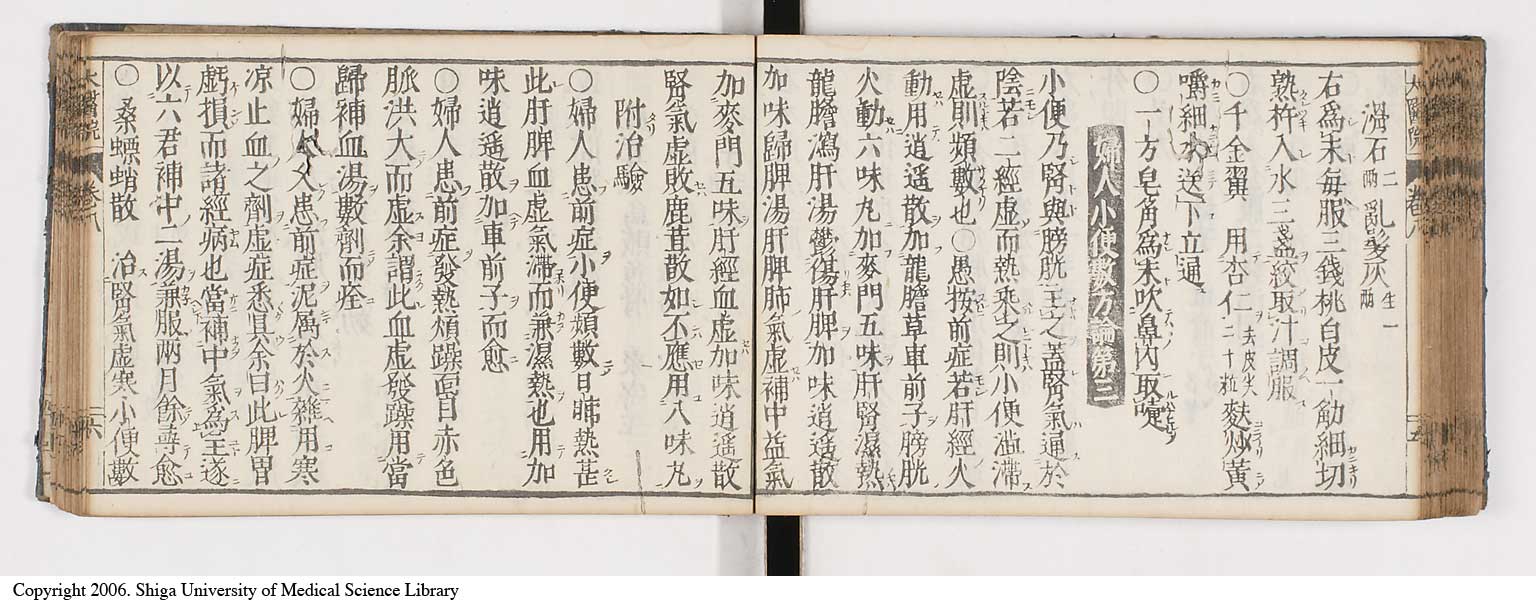 滑石二両 亂髮灰生一両
右爲末毎服三錢桃白皮一觔細切
熟杵入水三盞絞取汁調服
○千金翼 用杏仁二十粒去皮尖麩炒黄
嚼細水送下立通
○一方皂角爲末吹鼻内取嚏
婦人小便數方論第三
小便乃腎與膀胱主之蓋腎氣通於
陰若二經虚而熱乘之則小便澁滯
虚則頻數也○愚按前症若肝經火
動用逍遥散加龍膽草車前子膀胱
火動六味丸加麥門五味肝腎濕熱
龍膽瀉肝湯鬱傷肝脾加味逍遥散
加味歸脾湯肝脾肺氣虚補中益氣
加麥門五味肝經血虚加味逍遥散
腎氣虚敗鹿茸散如不應用八味丸
附治驗
○婦人患前症小便頻數日晡熱甚
此肝脾血虚氣滯而兼濕熱也用加
味逍遥散加車前子而愈
○婦人患前症發熱煩躁面目赤色
脈洪大而虚余謂此血虚發躁用當
歸補血湯數劑而痊
○婦人久患前症泥属於火雜用寒
凉止血之劑虚症悉具余曰此脾胃
虧損而諸經病也當補中氣爲主遂
以六君補中二湯兼服兩月餘尋愈
○桑螵蛸散 治腎氣虚寒小便數
太醫院 卷八
Copyright 2006. Shiga University of Medical Science Library